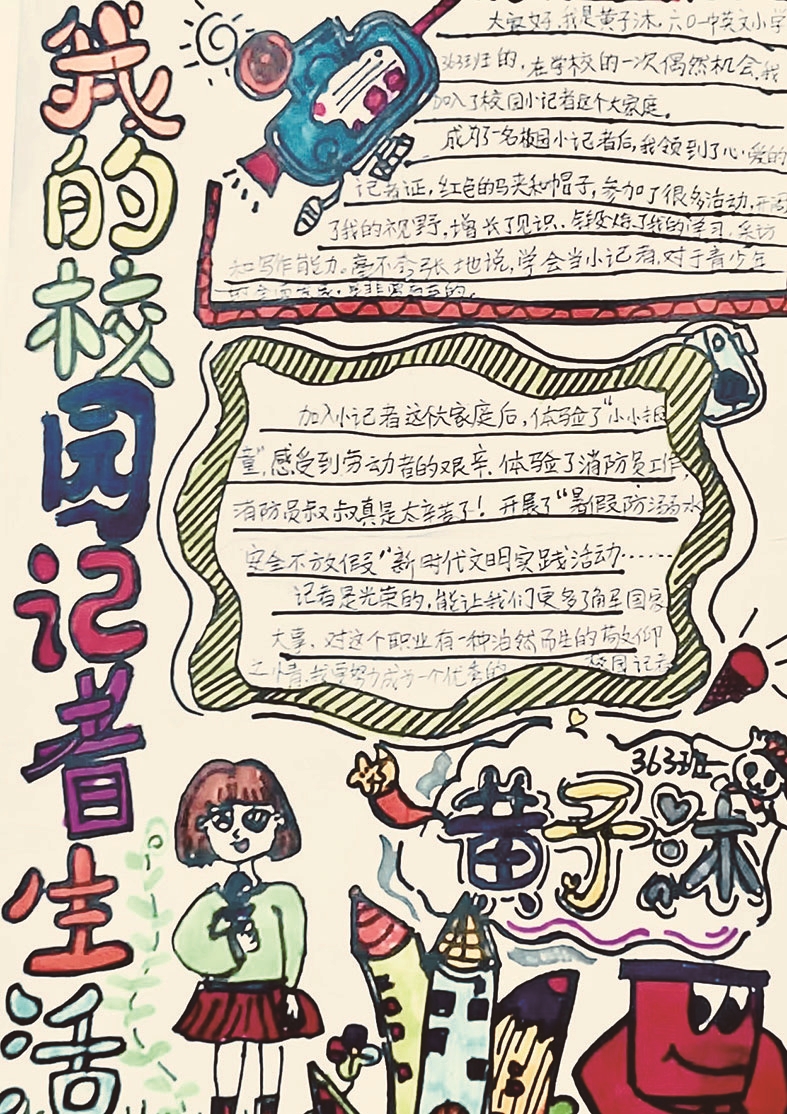 我的校园记者生活
大家好,我是黄子沐,六〇一中英文小学
363班的,在学校的一次偶然机会,我
加入了校园小记者这个大家庭。
成为了一名校园小记者后,我领到了心爱的
记者证,红色的马夹和帽子,参加了很多活动,开阔
了我的视野,增长了见识,锻炼了我的学习、采访
和写作能力。毫不夸张地说,学会当小记者,对于青少年
加入小记者这个大家庭后,体验了“小小报
童”,感受到劳动者的艰辛,体验了消防员工作,
消防员叔叔真是太辛苦了!开展了“暑假防溺水
安全不放假”新时代文明实践活动……
记者是光荣的,能让我们更多了解到国家
大事,对这个职业有一种油然而生的敬仰
之情,我要努力成为一个优秀的校园记者
363班
黄子沐